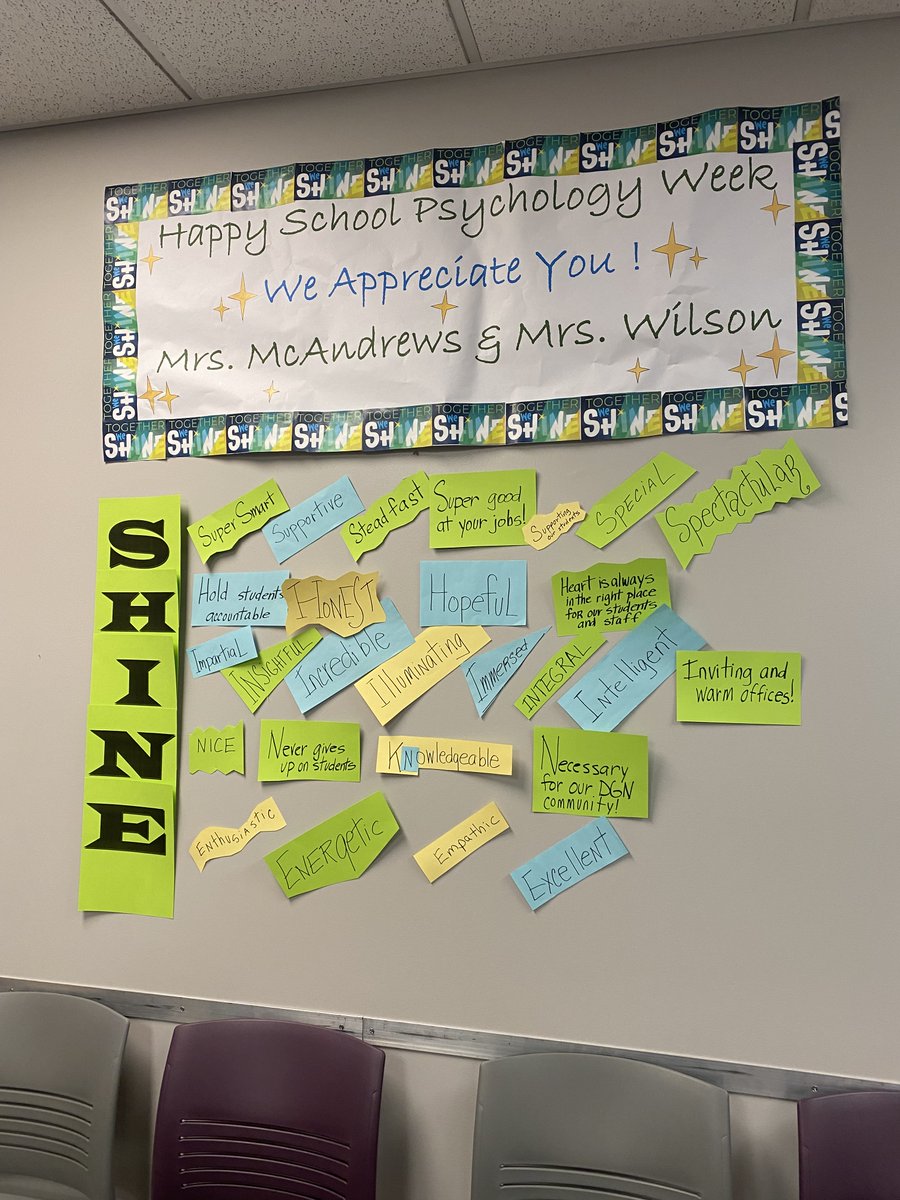 TOGETHER
We SHINE
Happy School Psychology Week
We Appreciate You !
Mrs. McAndrews & Mrs. Wilson
SHINE
Super Smart
Supportive
Steadfast
Super good
at your jobs!
Supporting
our students
SPECIAL
Spectacular
Hold students
accountable
HONEST
Hopeful
Heart is always
in the right place
for our students
and staff
Impartial
INSIGHTFUL
Incredible
Illuminating
Immersed
INTEGRAL
Intelligent
Inviting and
warm offices!
NICE
Never gives
up on students
KNowledgeable
Necessary
for our DGN
community!
ENTHUSIASTIC
ENERGETIC
Empathic
Excellent